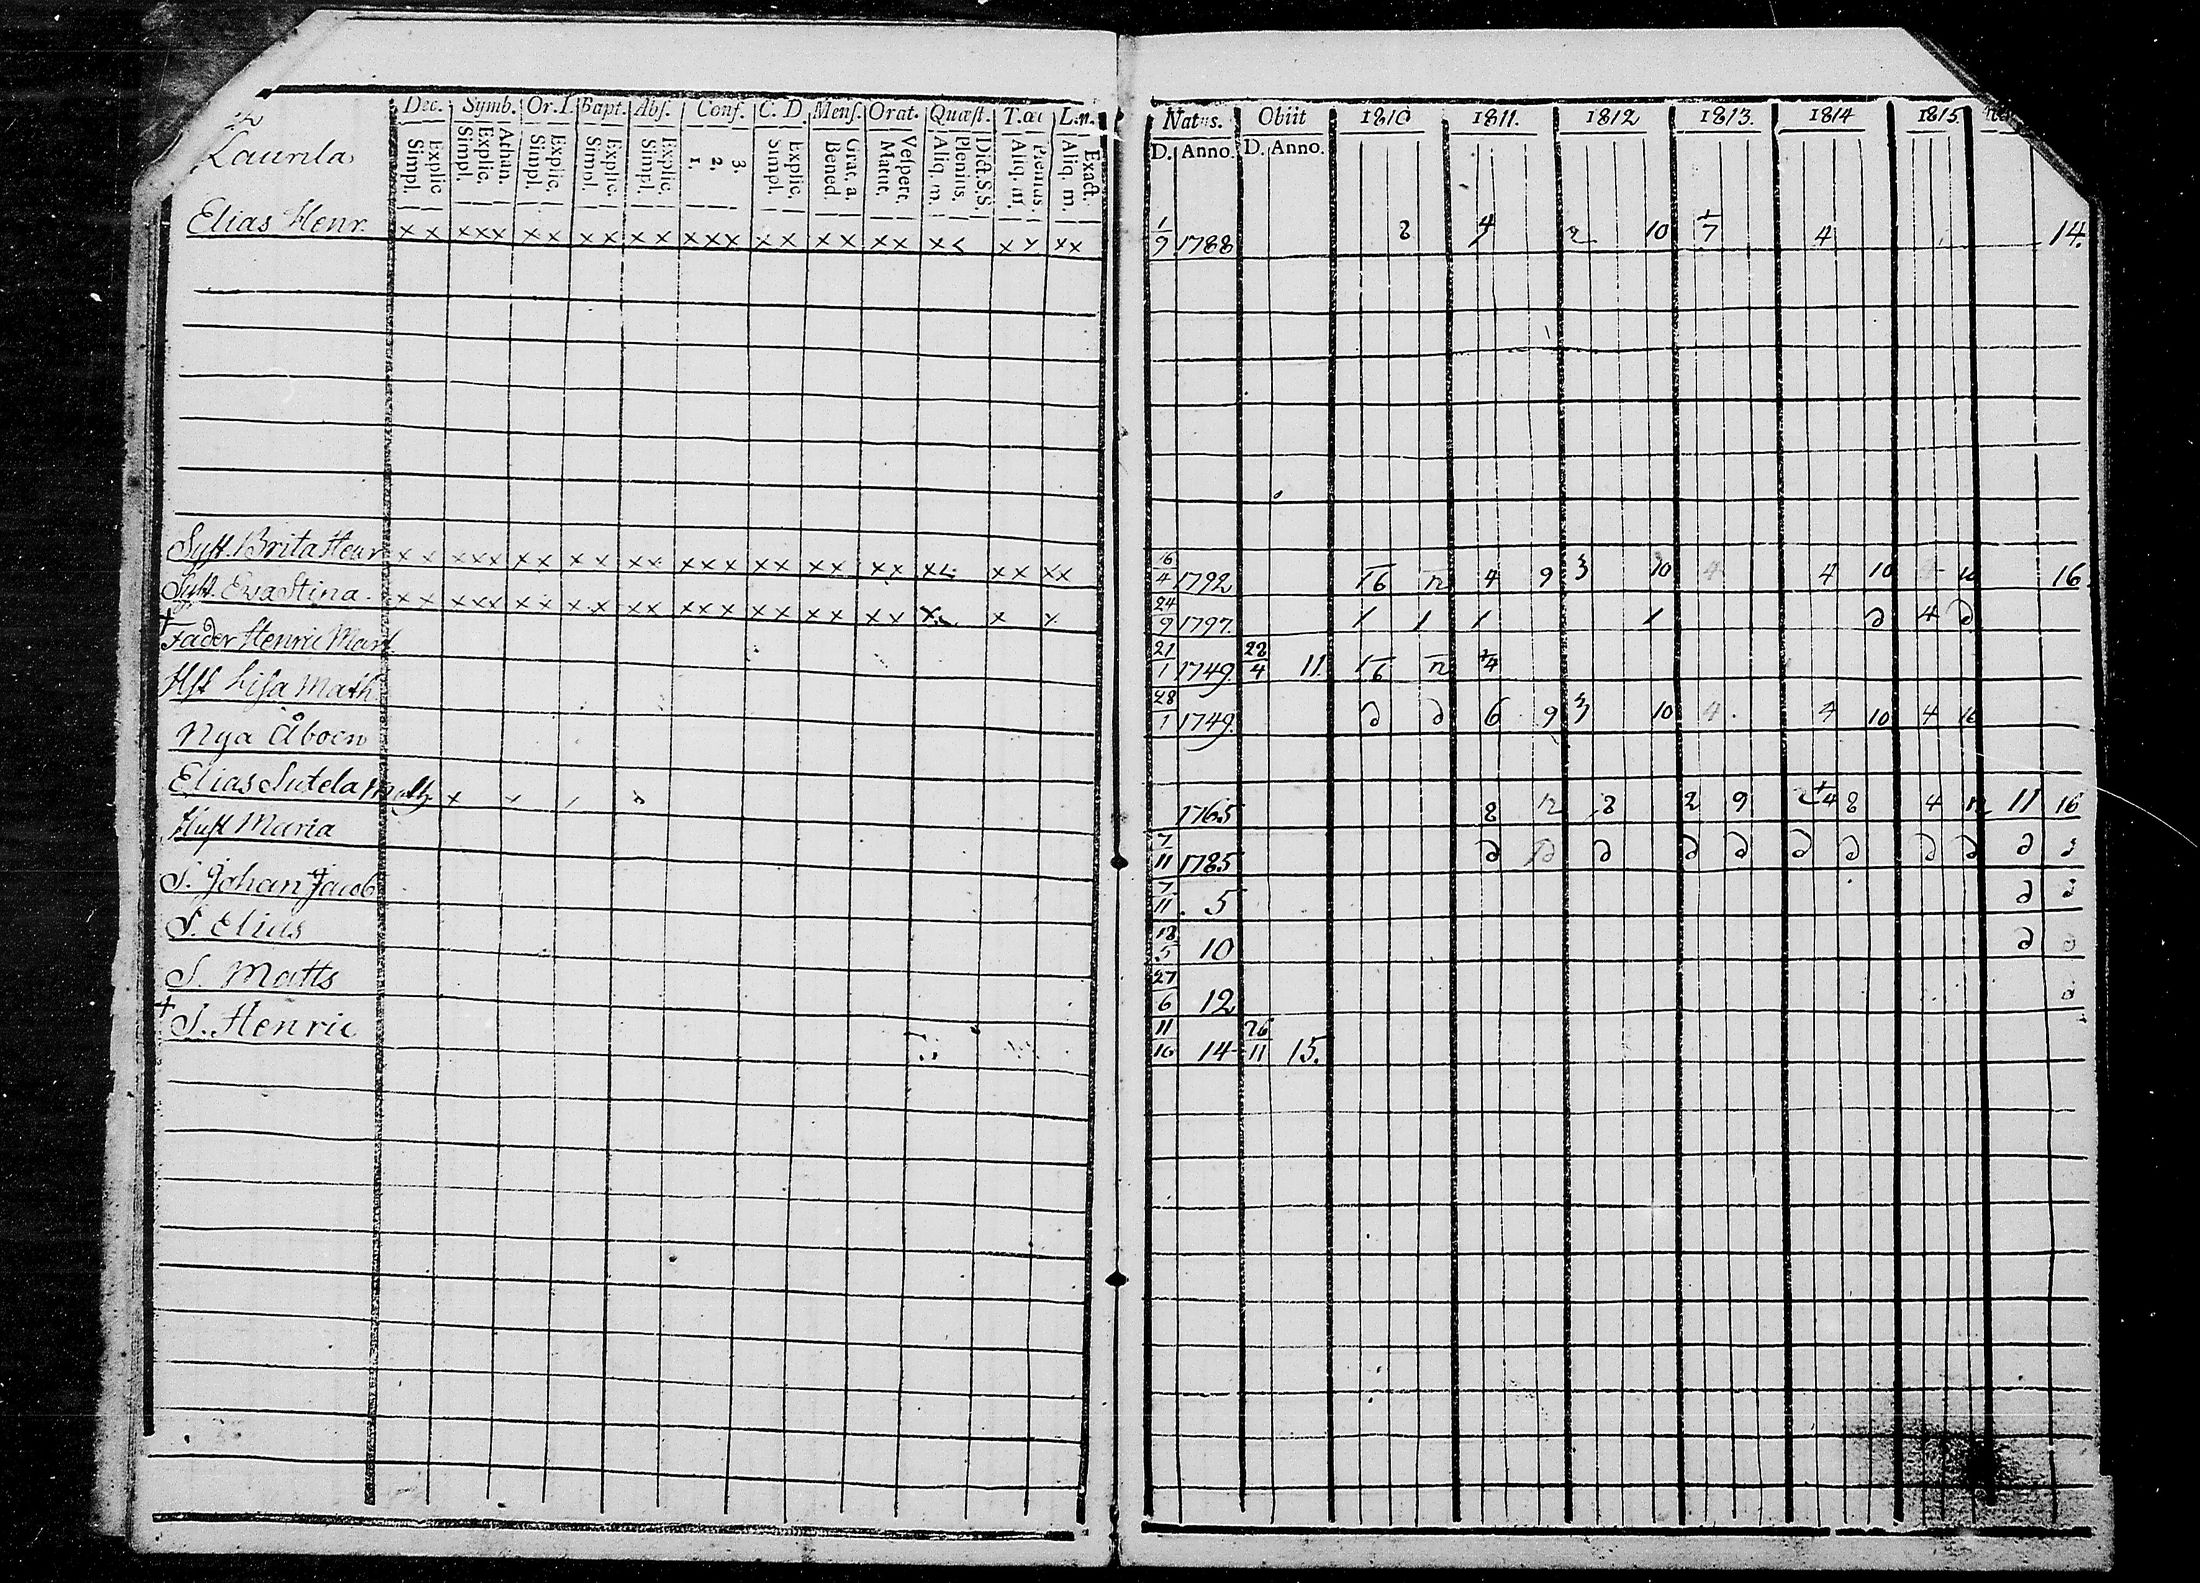 Laurila
Dec. Symb. Or. D. Bapt. Abs. Conf. C. D. Mens. Orat. Quæst. T. æc
Simpl. Explic. Simpl. Explic. Athan. Simpl. Explic. Simpl. Explic. Simpl. Explic. 1. 2. 3. Simpl. Explic. Bened. Grat. a. Matut. Vespert. Aliq. m. Plenius. Dict. S. S. Aliq. m. Plenius. Aliq. m. Exact.
Natus. Obiit 1810 1811. 1812 1813. 1814 1815
D. Anno. D. Anno.
Elias Henr. x x x x x x x x x x x x x x x x x x x x x x x x x 1/9 1788 8 4 2 10 7 4 14.
Syst. Brita Henr x x x x x x x x x x x x x x x x x x x x x x x x 16/4 1792 16 12 4 9 3 10 4 4 10 4 10 16.
Syst. Eva Stina. x x x x x x x x x x x x x x x x x x x x x x 24/9 1797. 1 1 1 1 d 4 d
† Fader Henric Mart. 21/1 1749. 22/4 11. 16 12 4
Hst Lisa Math. 28/1 1749. d d 6 9 3 10 4 4 10 4 10
Nya Åboen
Elias Sutela Matts x 1765 8 12 8 2 9 4 8 4 12 11 16
Hust Maria 7/11 1785 d d d d d d d d d d d
S. Johan Jacob 7/11 5 d d
S. Elias 18/5 10 d d
S. Matts 27/6 12 d
† S. Henric 11/10 14 26/11 15.